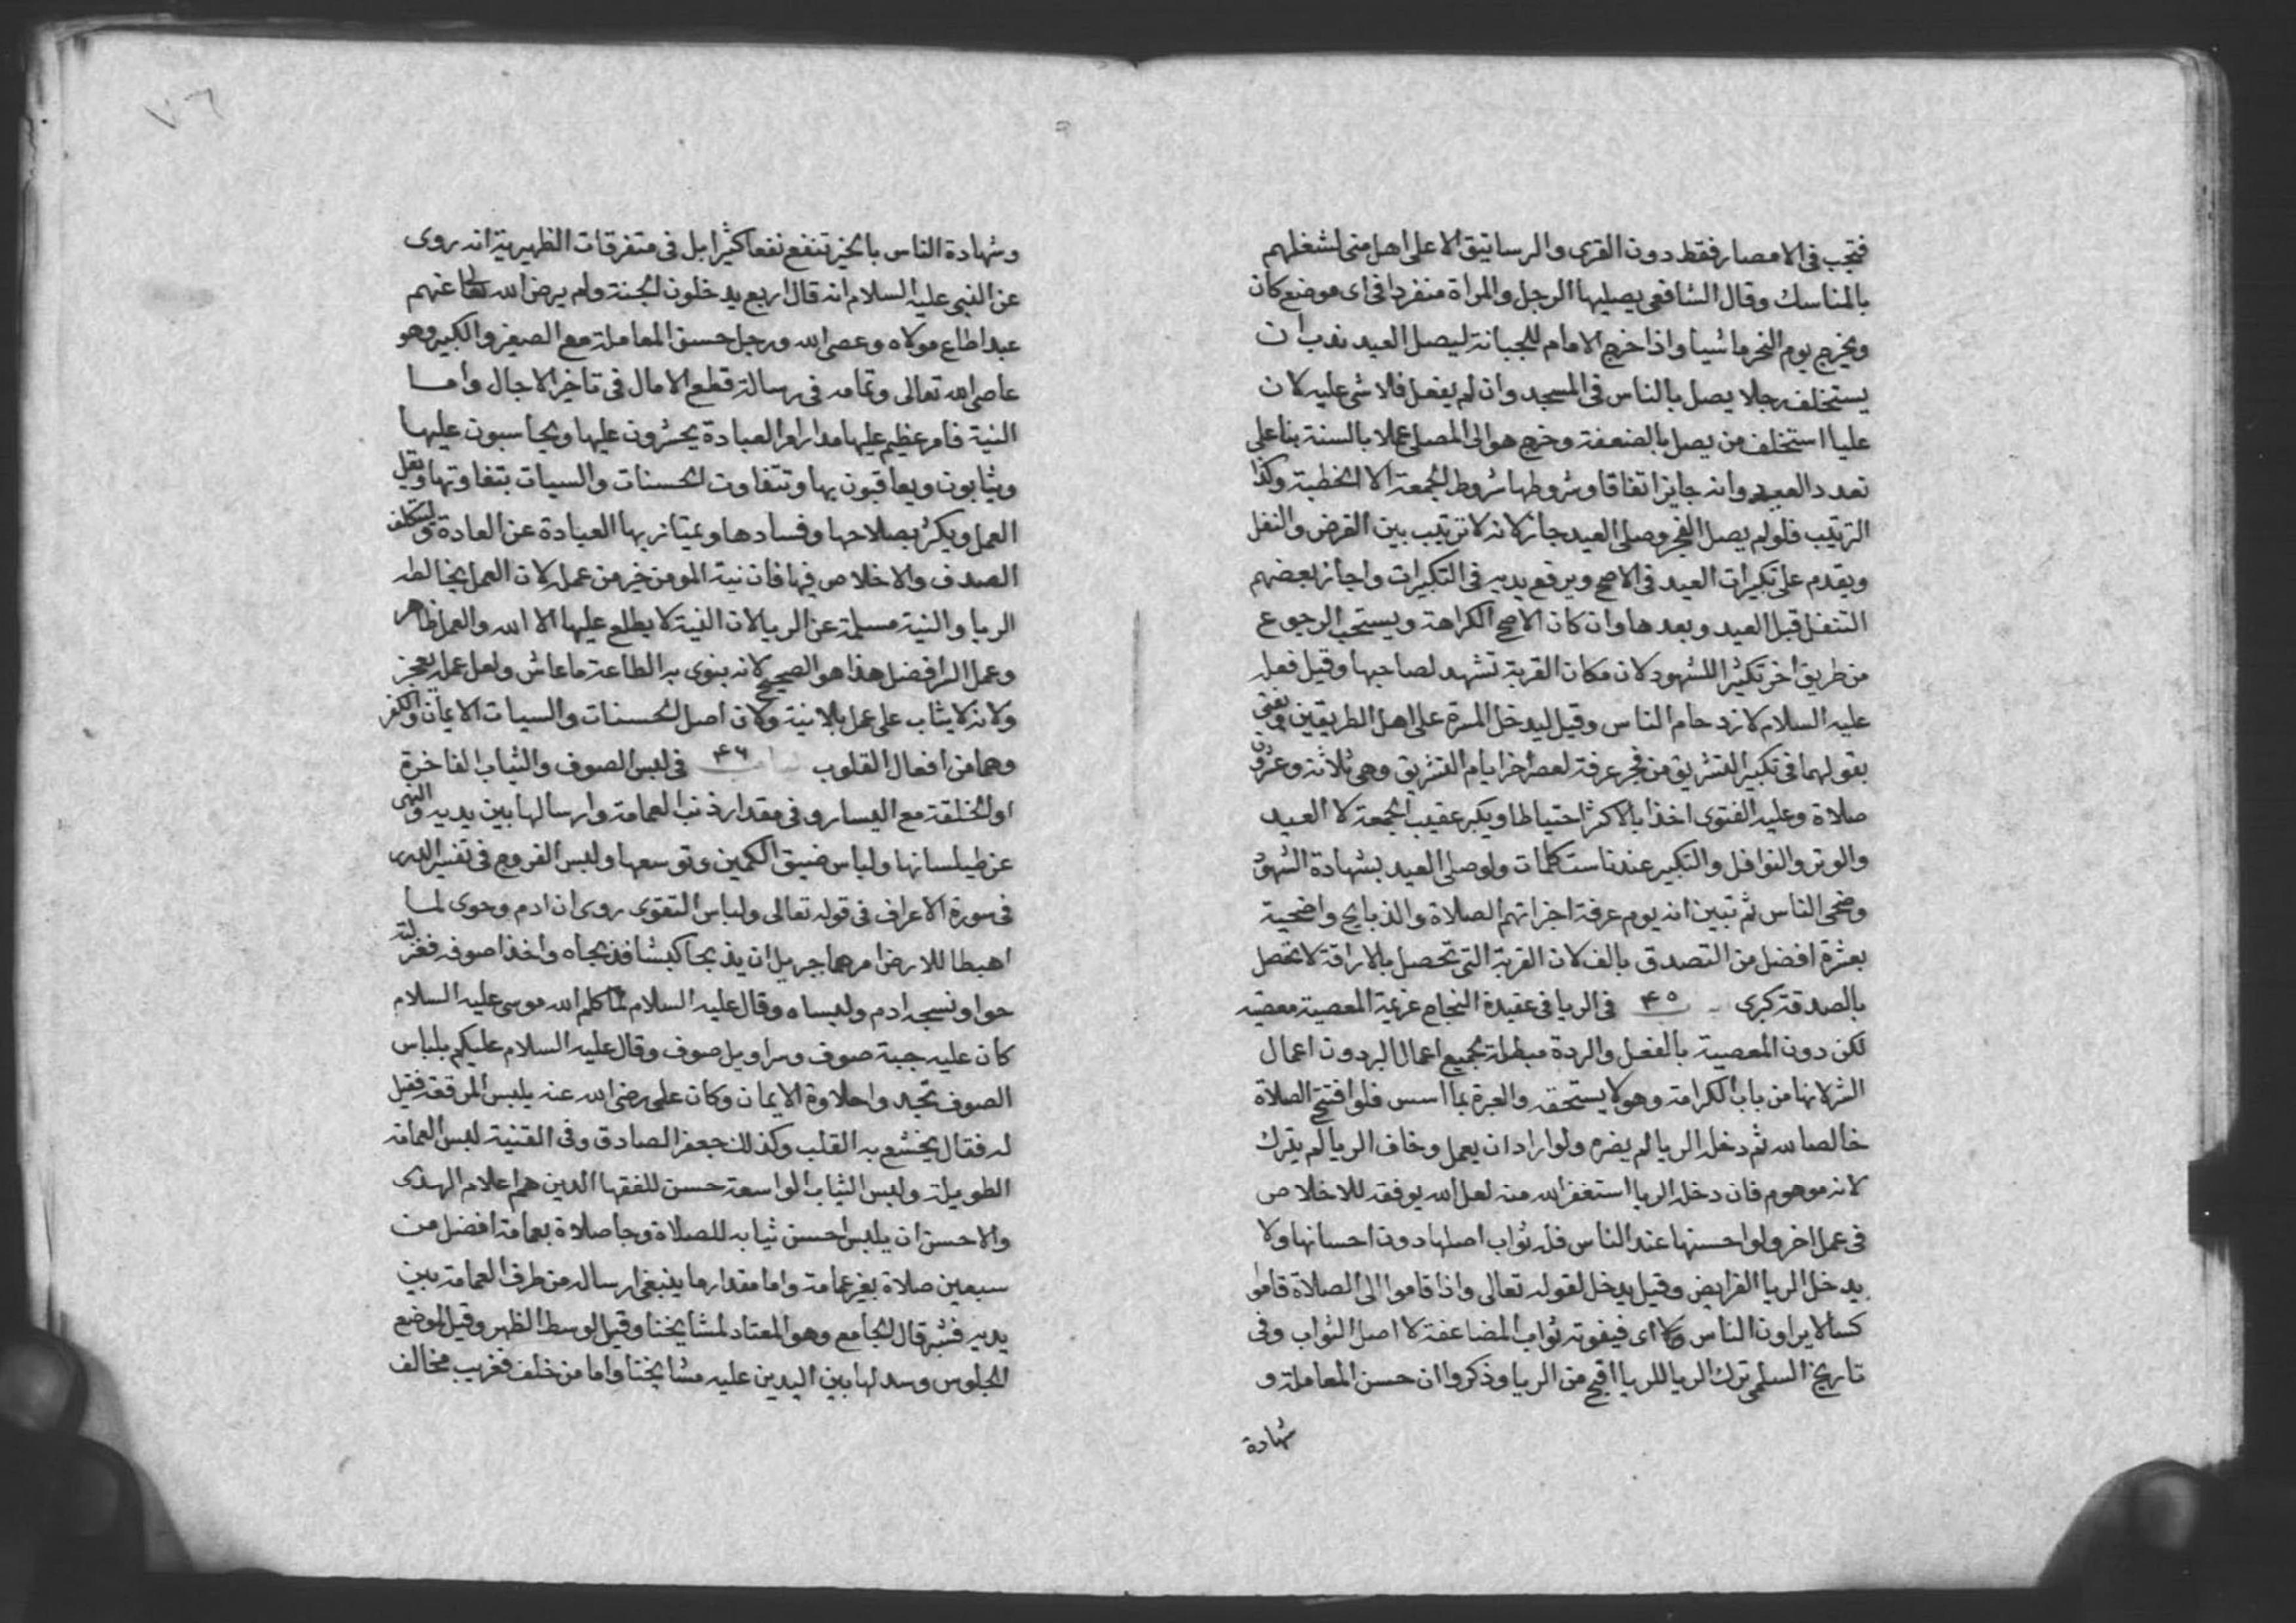 فتجب فى الامصار فقط دون القرى والرساتيق الا على اهل منى لشغلهم
بالمناسك وقال الشافعى يصليها الرجل والمراة منفردا فى اى موضع كان
ويخرج يوم النحر ماشيا واذا خرج الامام للجبانة ليصل العيد ندب ان
يستخلف رجلا يصل بالناس فى المسجد وان لم يفعل فلا شى عليه لان
عليا استخلف من يصل بالضعفة وخرج هو الى المصلى عملا بالسنة بنا على
تعدد العيد وانه جايز اتفاقا وشروطها شروط الجمعة الا الخطبة وكذا
الترتيب فلو لم يصل الفجر وصلى العيد جاز لانه لا ترتيب بين الفرض والنفل
ويقدم على تكبيرات العيد فى الاصح ويرفع يديه فى التكبيرات واجاز بعضهم
التنفل قبل العيد وبعدها وان كان الاصح الكراهة ويستحب الرجوع
من طريق اخر تكثيرا للشهود لان مكان القربة تشهد لصاحبها وقيل فعله
عليه السلام لازدحام الناس وقيل ليدخل المسرة على اهل الطريقين ويفتى
بقولهما فى تكبير التشريق من فجر عرفة لعصر اخر ايام التشريق وهى ثلاثة وعشرون
صلاة وعليه الفتوى اخذا بالاكثر احتياطا ويكبر عقيب الجمعة لا العيد
والوتر والنوافل والتكبير عندنا ست كلمات ولو صلى العيد بشهادة الشهود
وضحى الناس ثم تبين انه يوم عرفة اجزاتهم الصلاة والذبايح واضحية
بعشرة افضل من التصدق بالف لان القربة التى تحصل بالاراقة لا تحصل
بالصدقة كبرى ٤٥ فى الريا فى عقيدة النجاح عزيمة المعصية معصية
لكن دون المعصية بالفعل والردة مبطلة لجميع اعمال البر دون اعمال
الشر لانها من باب الكرامة وهو لا يستحقه والعبرة بما اسس فلو افتتح الصلاة
خالصا لله ثم دخله الريا لم يضره ولو اراد ان يعمل وخاف الريا لم يترك
لانه موهوم فان دخله الريا استغفر الله منه لعل الله يوفقه للاخلاص
فى عمل اخر ولو احسنها عند الناس فله ثواب اصلها دون احسانها ولا
يدخل الريا الفرايض وقيل يدخل لقوله تعالى واذا قاموا الى الصلاة قاموا
كسالا يراون الناس اى فيفوته ثواب المضاعفة لا اصل الثواب وفى
تاريخ السلمى ترك الريا للريا اقبح من الريا وذكروا ان حسن المعاملة و
شهادة
٧٦
وشهادة الناس بالخير تنفع نفعا كثيرا بل فى متفرقات الظهيرية انه روى
عن النبى عليه السلام انه قال اربع يدخلون الجنة ولم يرض الله تعالى عنهم
عبد اطاع مولاه وعصى الله ورجل حسن المعاملة مع الصغير والكبير وهو
عاصى لله تعالى وتمامه فى رسالة قطع الامال فى تاخير الاجال واما
النية فامر عظيم عليها مدار امر العبادة يحشرون عليها ويحاسبون عليها
ويثابون ويعاقبون بها وتتفاوت الحسنات والسيات بتفاوتها ويقل
العمل ويكثر بصلاحها وفسادها ويمتاز بها العبادة عن العادة وليتكلف
الصدق والاخلاص فيها فان نية المومن خير من عمله لان العمل يخالطه
الريا والنية مسلمة عن الريا لان النية لا يطلع عليها الا الله والعمل ظاهر
وعمل السر افضل هذا هو الصحيح لانه ينوى به الطاعة ما عاش ولعل عمله يعجز
ولانه لا يثاب على عمل بلا نية ولان اصل الحسنات والسيات الايمان والكفر
وهما من افعال القلوب ٤٦ فى لبس الصوف والثياب الفاخرة
او الخلقة مع اليسار وفى مقدار ذنب العمامة وارسالها بين يديه والنهى
عن طيلسانها ولباس ضيق الكمين وتوسعها ولبس الفروج فى تفسير الدرر
فى سورة الاعراف فى قوله تعالى ولباس التقوى روى ان ادم وحوى لما
اهبطا للارض امرهما جبريل ان يذبحا كبشا فذبحاه واخذا صوفه فغزلته
حوا ونسجه ادم ولبساه وقال عليه السلام لما كلم الله موسى عليه السلام
كان عليه جبة صوف وسراويل صوف وقال عليه السلام عليكم بلباس
الصوف تجدوا حلاوة الايمان وكان على رضى الله عنه يلبس المرقعة فقيل
له فقال يخشع به القلب وكذلك جعفر الصادق وفى القنية لبس العمامة
الطويلة ولبس الثياب الواسعة حسن للفقها الذين هم اعلام الهدى
والاحسن ان يلبس احسن ثيابه للصلاة وجا صلاة بعمامة افضل من
سبعين صلاة بغير عمامة واما مقدار ما ينبغى ارساله من طرف العمامة بين
يديه فشبر قال الجامع وهو المعتاد لمشايخنا وقيل لوسط الظهر وقيل لموضع
الجلوس وسدلها بين اليدين عليه مشايخنا واما من خلف فغريب مخالف